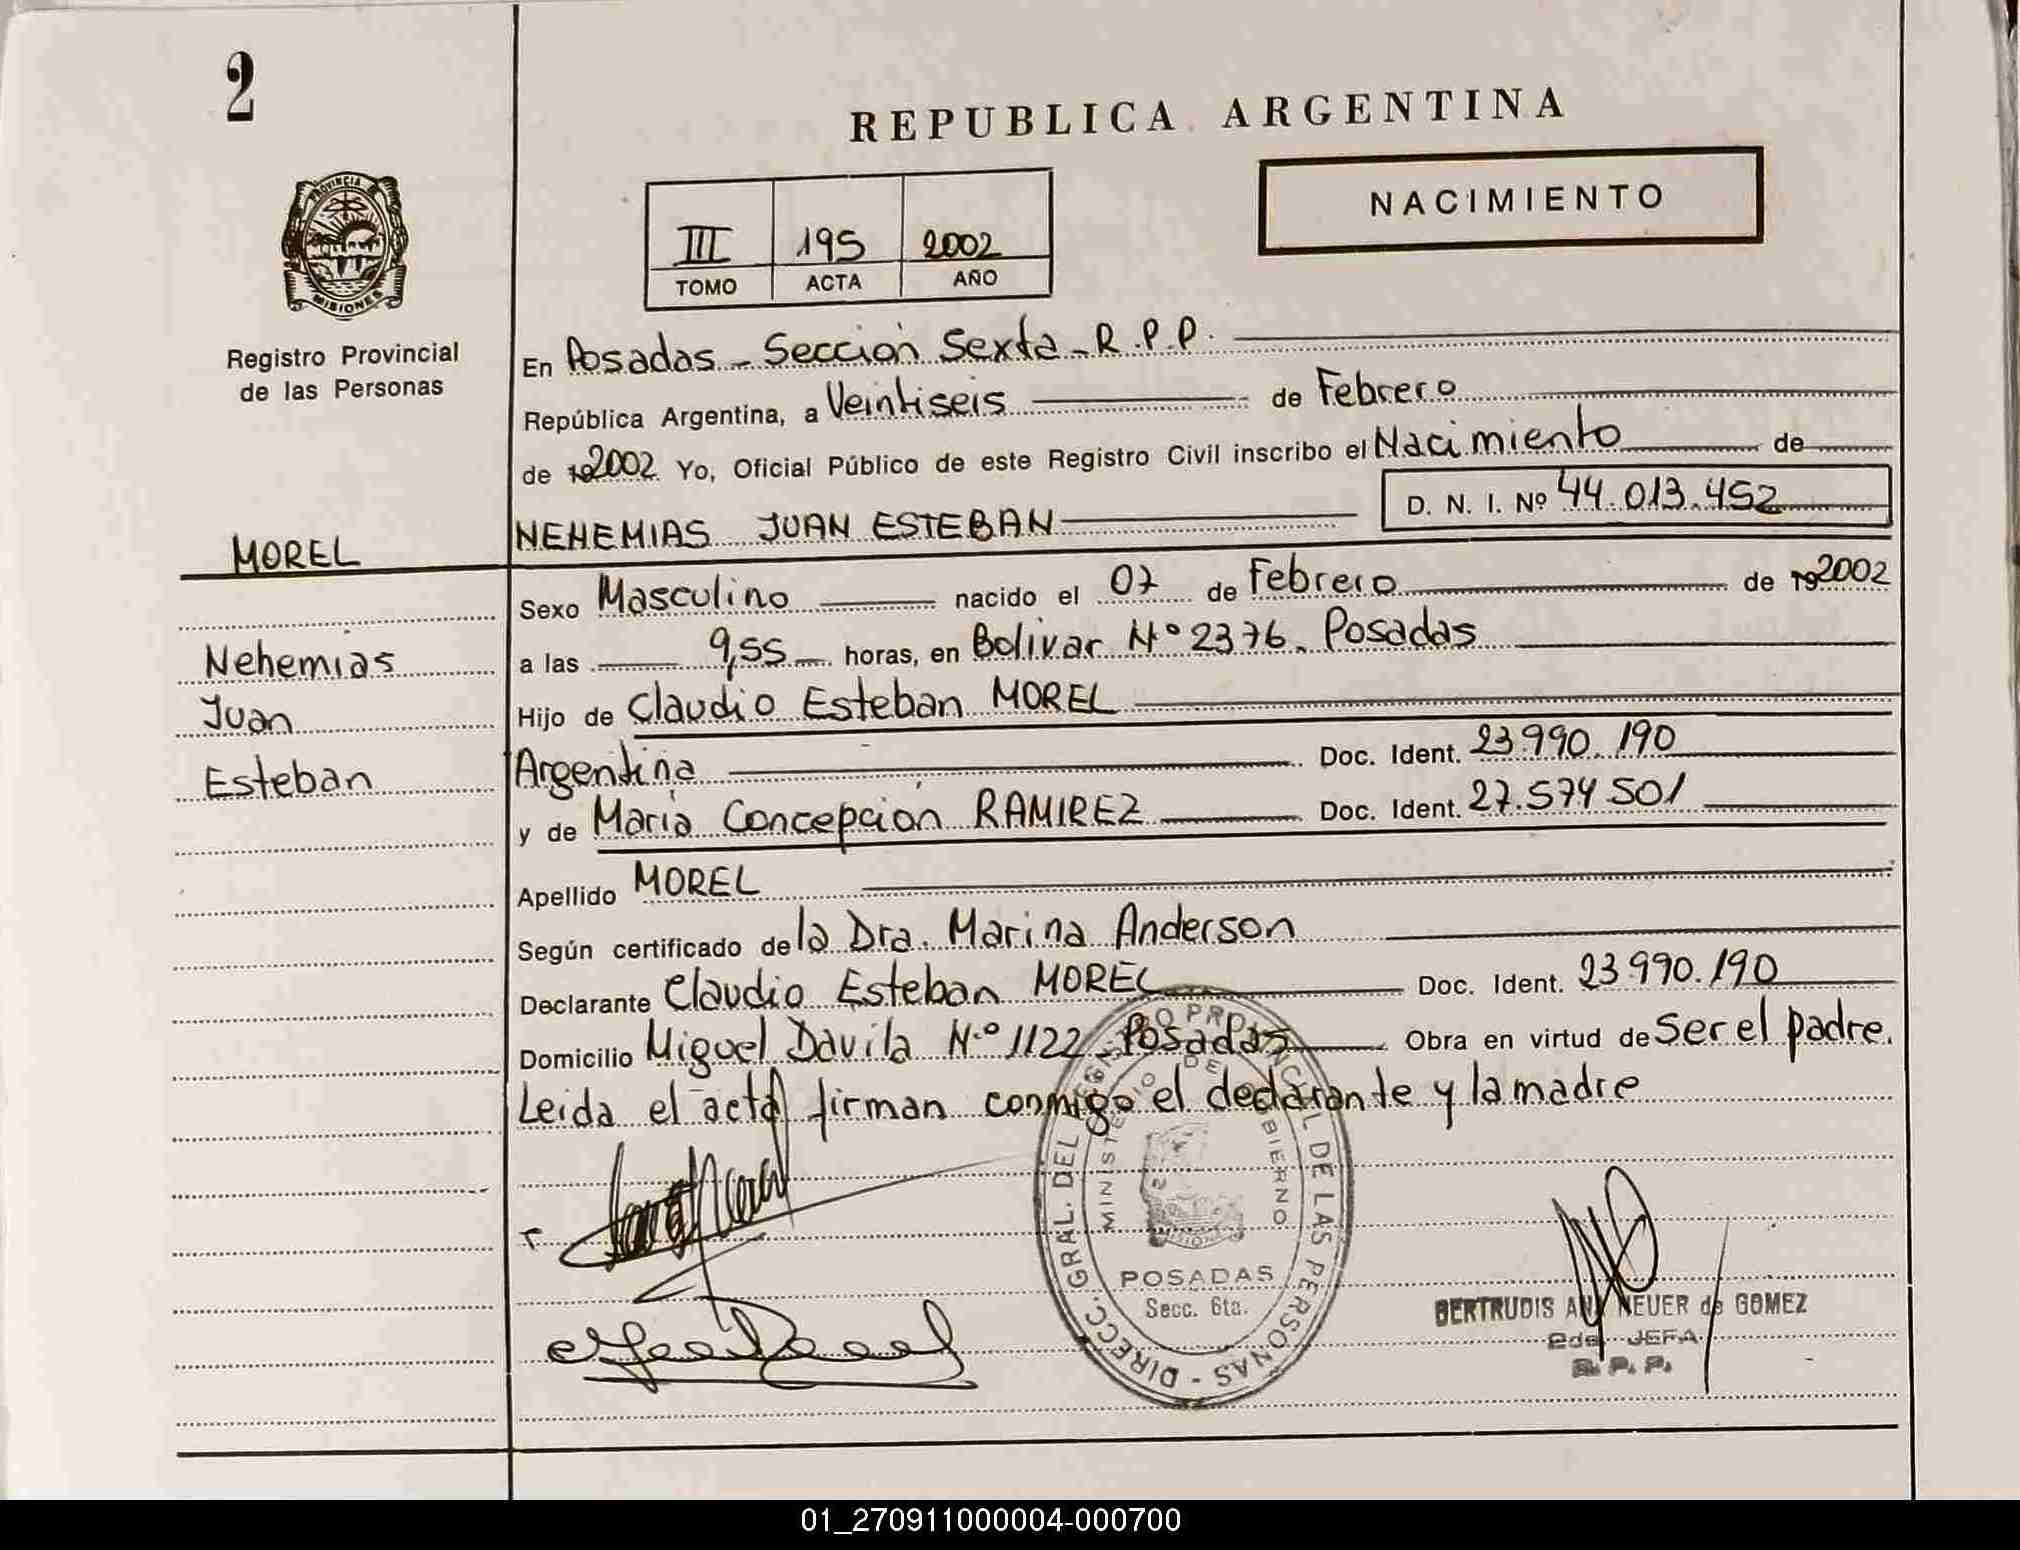 2
REPUBLICA ARGENTINA
NACIMIENTO
III 195 2002
TOMO ACTA AÑO
PROVINCIA DE
MISIONES
Registro Provincial
de las Personas
En Posadas - Sección Sexta - R.P.P.
República Argentina, a Veintiseis de Febrero
de 192002 Yo, Oficial Público de este Registro Civil inscribo el Nacimiento de
D. N. I. Nº 44.013.452
MOREL NEHEMIAS JUAN ESTEBAN
Sexo Masculino nacido el 07 de Febrero de 192002
Nehemias
a las 9,55 horas, en Bolivar Nº 2376. Posadas
Juan
Hijo de Claudio Esteban MOREL
Esteban
Argentina Doc. Ident. 23.990.190
y de María Concepción RAMIREZ Doc. Ident. 27.574.501
Apellido MOREL
Según certificado de la Dra. Marina Anderson
Declarante Claudio Esteban MOREL Doc. Ident. 23.990.190
Domicilio Miguel Davila N.º 1122 - Posadas Obra en virtud de Ser el padre.
Leida el acta firman conmigo el declarante y la madre
DIRECC. GRAL. DEL REGISTRO PROVINCIAL DE LAS PERSONAS -
MINISTERIO DE GOBIERNO
MISIONES
POSADAS
Secc. 6ta.
BERTRUDIS ANA NEUER de GOMEZ
2da JEFA
R. P. P.
01_270911000004-000700